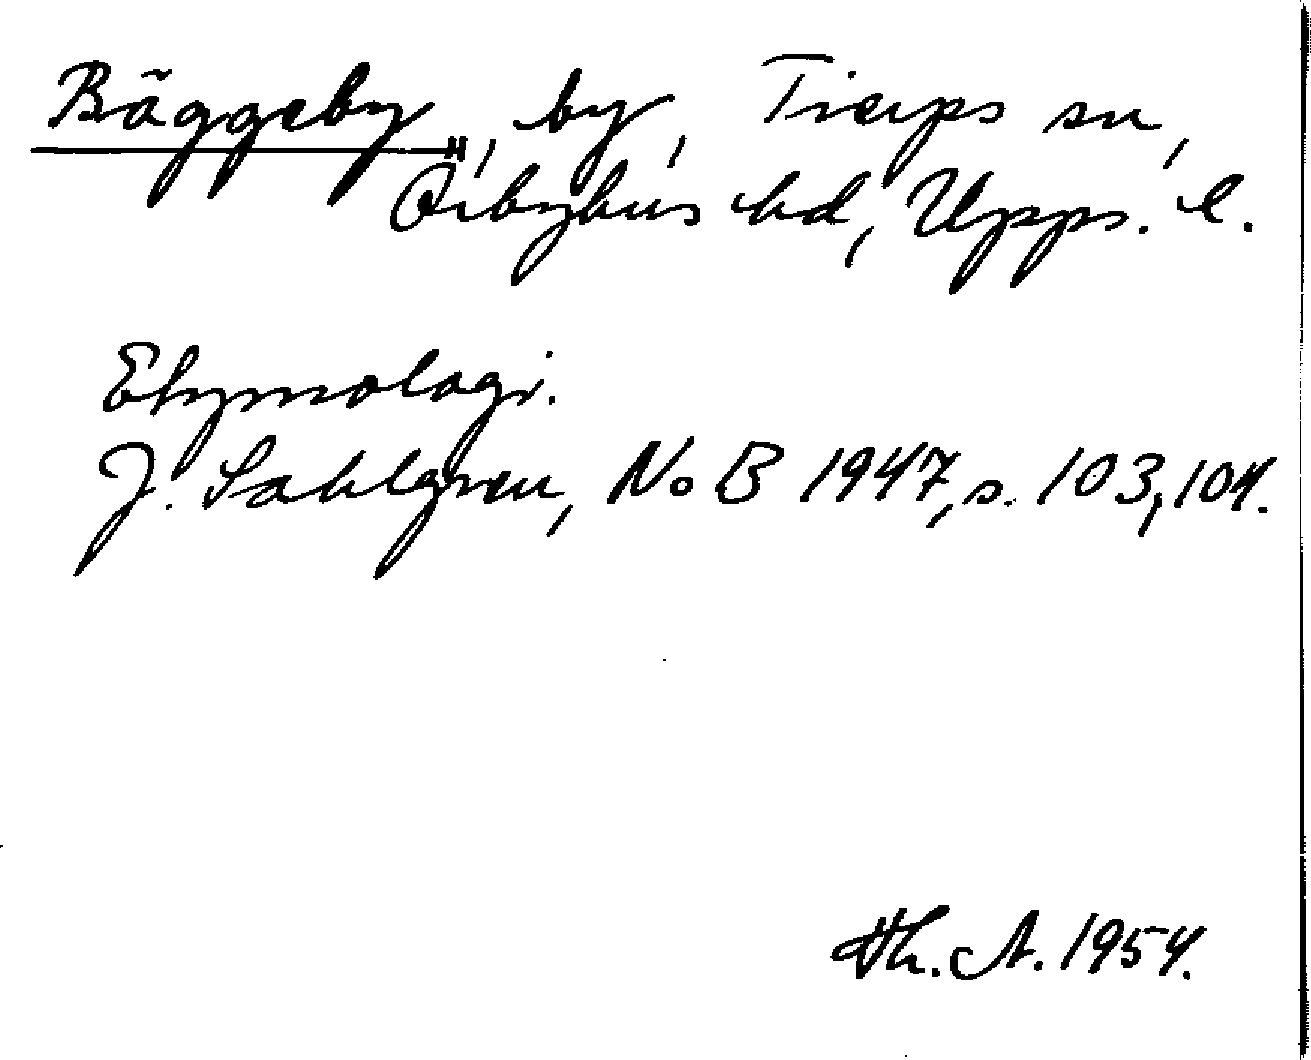 Bäggeby, by, Tierps sn,
Örbyhus hd, Upps. l.
Etymologi.
J. Sahlgren, NoB 1947, s. 103, 104.
Th. A. 1954.